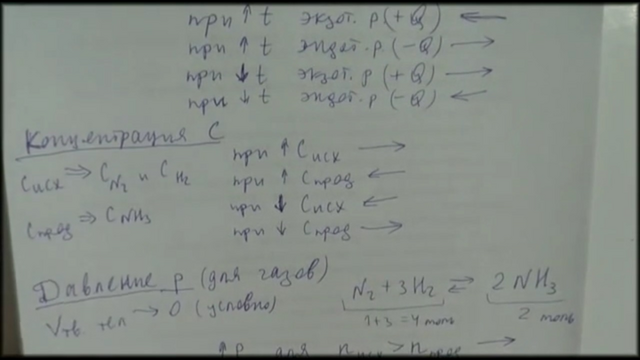 при ↑ t экзот. р (+Q) ←
при ↑ t эндот. р (−Q) →
при ↓ t экзот. р (+Q) →
при ↓ t эндот. р (−Q) ←
Концентрация C
Cисх ⇒ C N2 и C H2
Cпрод ⇒ C NH3
при ↑ Cисх →
при ↑ Cпрод ←
при ↓ Cисх ←
при ↓ Cпрод →
Давление p (для газов)
Vтв. тел → 0 (условно)
N2 + 3H2 ⇄ 2NH3
1+3=4 моль 2 моль
↑ P для nисх > nпрод →